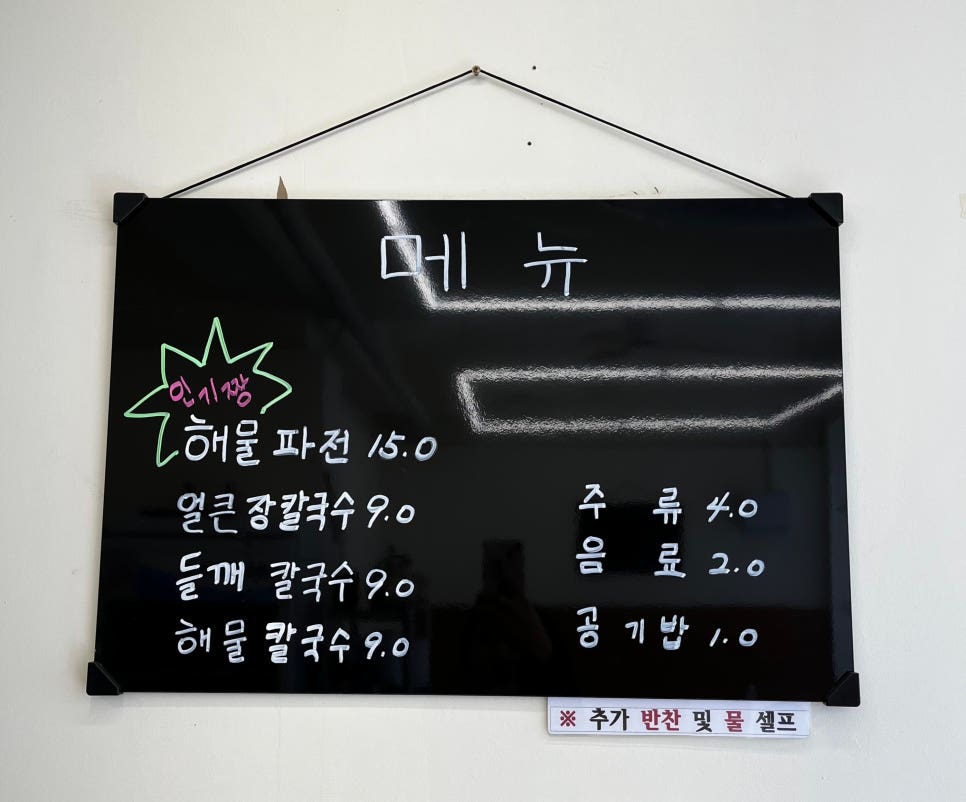 메 뉴
인기짱
해물 파전 15.0
얼큰 장칼국수 9.0
들깨 칼국수 9.0
해물 칼국수 9.0
주 류 4.0
음 료 2.0
공 기 밥 1.0
※ 추가 반찬 및 물 셀프